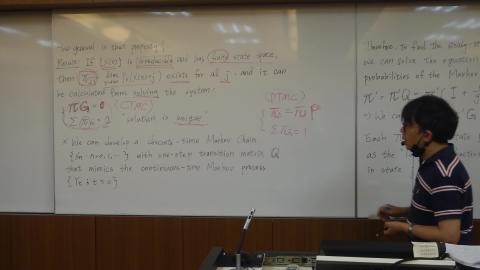 How general is that property?
Result: If {X(t)} is irreducible and has finite state space,
then π_j = lim P_ij(t) exists for all j. and it can
be calculated from solving the system:
πG = 0 (CTMC)
Σ π_j = 1 solution is unique
(DTMC)
π = π P
Σ π_j = 1
* We can develop a discrete-time Markov Chain
with one-step transition matrix Q
that mimics the continuous-time Markov process
Therefore, to find the steady-st
we can solve the equation
probabilities of the Markov
π' = π'Q = π'(I +
as the
in state